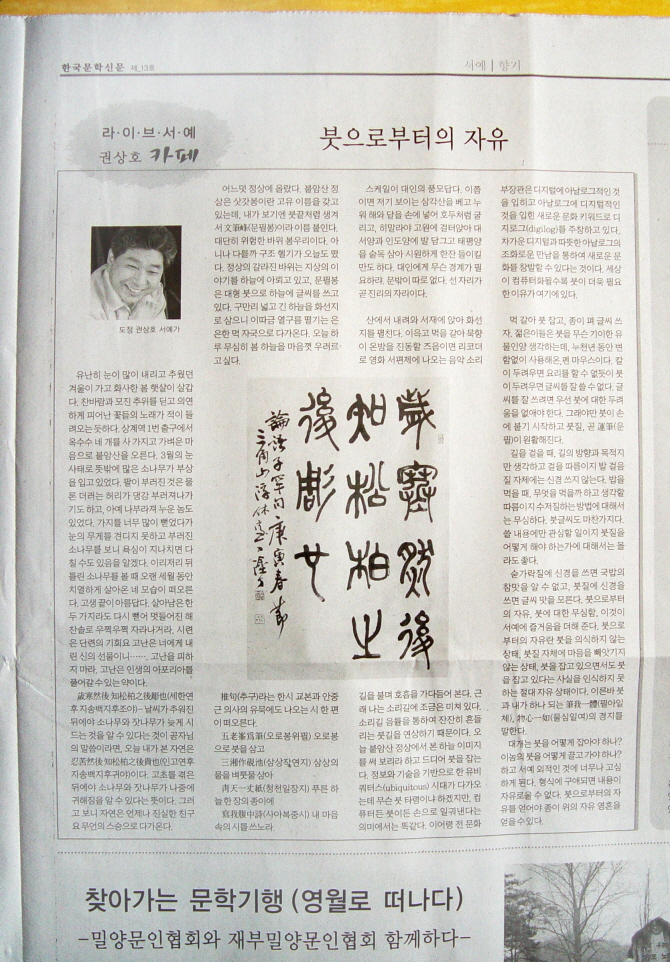 한국문학신문 제_13호
서예 | 향기
라·이·브·서·예
권상호 카페
붓으로부터의 자유
도정 권상호 서예가
유난히 눈이 많이 내리고 추웠던
겨울이 가고 화사한 봄 햇살이 살갑
다. 찬바람과 모진 추위를 딛고 의연
하게 피어난 꽃들의 노래가 적이 들
려오는 듯하다. 상계역 1번 출구에서
옥수수 네 개를 사 가지고 가벼운 마
음으로 불암산을 오른다. 3월의 눈
사태로 뜻밖에 많은 소나무가 부상
을 입고 있었다. 팔이 부러진 것은 물
론 더러는 허리가 댕강 부러져나가
기도 하고, 아예 나부라져 누운 놈도
있었다. 가지를 너무 많이 뻗었다가
눈의 무게를 견디지 못하고 부러진
소나무를 보니 욕심이 지나치면 다
칠 수도 있음을 알겠다. 이리저리 뒤
틀린 소나무를 볼 때 오랜 세월 동안
치열하게 살아온 네 모습이 떠오른
다. 고생 끝이 아름답다. 살아남은 한
두 가지라도 다시 뻗어 멋들어진 해
찬솔로 우쩍우쩍 자라나거라. 시련
은 단련의 기회요 고난은 너에게 내
린 신의 선물이니……. 고난을 피하
지 마라. 고난은 인생의 아포리아를
풀어갈 수 있는 약이다.
歲寒然後 知松柏之後彫也(세한연
후 지송백지후조야) - 날씨가 추워진
뒤에야 소나무와 잣나무가 늦게 시
드는 것을 알 수 있다는 것이 공자님
의 말씀이라면, 오늘 내가 본 자연은
忍苦然後 知松柏之後貴也(인고연후
지송백지후귀야)이다. 고초를 겪은
뒤에야 소나무와 잣나무가 나중에
귀해짐을 알 수 있다는 뜻이다. 그러
고 보니 자연은 언제나 진실한 친구
요 무언의 스승으로 다가온다.
어느덧 정상에 올랐다. 불암산 정
상은 삿갓봉이란 고유 이름을 갖고
있는데, 내가 보기엔 붓끝처럼 생겨
서 文筆峰(문필봉)이라 이름 붙인다.
대단히 위험한 바위 봉우리이다. 아
니나 다를까 구조 헬기가 오늘도 떴
다. 정상의 갈라진 바위는 지상의 이
야기를 하늘에 아뢰고 있고, 문필봉
은 대형 붓으로 하늘에 글씨를 쓰고
있다. 구만리 넓고 긴 하늘을 화선지
로 삼으니 이따금 열구름 떨기는 은
은한 먹 자국으로 다가온다. 오늘 하
루 무심히 봄 하늘을 마음껏 우러르
고 싶다.
스케일이 대인의 풍모답다. 이쯤
이면 저기 보이는 삼각산을 베고 누
워 해와 달을 손에 넣어 호두처럼 굴
리고, 히말라야 고원에 걸터앉아 대
서양과 인도양에 발 담그고 태평양
을 술독 삼아 시원하게 한잔 들이킬
만도 하다. 대인에게 무슨 경계가 필
요하랴. 문밖이 따로 없다. 선 자리가
곧 진리의 자리이다.
산에서 내려와 서재에 앉아 화선
지를 펼친다. 이윽고 먹을 갈아 묵향
이 온방을 진동할 즈음이면 리코더
로 영화 서편제에 나오는 음악 소리
歲寒然後
知松柏之
後彫也
論語子罕句 庚寅春節
三角山浮休室
推句(추구)라는 한시 교본과 안중
근 의사의 유묵에도 나오는 시 한 편
이 떠오른다.
五老峯爲筆(오로봉위필) 오로봉
으로 붓을 삼고
三湘作硯池(삼상작연지) 삼상의
물을 벼룻물 삼아
靑天一丈紙(청천일장지) 푸른 하
늘 한 장의 종이에
寫我腹中詩(사아복중시) 내 마음
속의 시를 쓰노라.
길을 붙며 호흡을 가다듬어 본다. 근
래 나는 소리길에 조금은 미쳐 있다.
소리길 음률을 통하여 잔잔히 흔들
리는 붓길을 연상하기 때문이다. 오
늘 불암산 정상에서 본 하늘 이미지
를 써 보리라 하고 드디어 붓을 잡는
다. 정보와 기술을 기반으로 한 유비
쿼터스(ubiquitous) 시대가 다가오
는데 무슨 붓 타령이냐 하겠지만, 컴
퓨터든 붓이든 손으로 일궈낸다는
의미에서는 똑같다. 이어령 전 문화
부장관은 디지털에 아날로그적인 것
을 입히고 아날로그에 디지털적인
것을 입힌 새로운 문화 키워드로 디
지로그(digilog)를 주창하고 있다.
차가운 디지털과 따뜻한 아날로그의
조화로운 만남을 통하여 새로운 문
화를 창발할 수 있다는 것이다. 세상
이 컴퓨터화될수록 붓이 더욱 필요
한 이유가 여기에 있다.
먹 갈아 붓 잡고, 종이 펴 글씨 쓰
자. 젊은이들은 붓을 무슨 기이한 유
물인양 생각하는데, 누천년 동안 변
함없이 사용해온, 펜 마우스이다. 칼
이 두려우면 요리를 할 수 없듯이 붓
이 두려우면 글씨를 잘 쓸 수 없다. 글
씨를 잘 쓰려면 우선 붓에 대한 두려
움을 없애야 한다. 그래야만 붓이 손
에 붙기 시작하고 붓질, 곧 運筆(운
필)이 원활해진다.
길을 걸을 때, 길의 방향과 목적지
만 생각하고 걸을 따름이지 발 걸음
질 자체에는 신경 쓰지 않는다. 밥을
먹을 때, 무엇을 먹을까 하고 생각할
따름이지 수저질하는 방법에 대해서
는 무심하다. 붓글씨도 마찬가지다.
쓸 내용에만 관심할 일이지 붓질을
어떻게 해야 하는가에 대해서는 몰
라도 좋다.
숟가락질에 신경을 쓰면 국밥의
참맛을 알 수 없고, 붓질에 신경을
쓰면 글씨 맛을 모른다. 붓으로부터
의 자유, 붓에 대한 무심함, 이것이
서예에 즐거움을 더해 준다. 붓으로
부터의 자유란 붓을 의식하지 않는
상태, 붓질 자체에 마음을 빼앗기지
않는 상태, 붓을 잡고 있으면서도 붓
을 잡고 있다는 사실을 인식하지 못
하는 절대 자유 상태이다. 이른바 붓
과 내가 하나 되는 筆我一體(필아일
체), 物心一如(물심일여)의 경지를
말한다.
대개는 붓을 어떻게 잡아야 하나?
이놈의 붓을 어떻게 끌고 가야 하나?
하고 서예 외적인 것에 너무나 고심
하게 된다. 형식에 구애되면 내용이
자유로울 수 없다. 붓으로부터의 자
유를 얻어야 종이 위의 자유 영혼을
얻을 수 있다.
찾아가는 문학기행 (영월로 떠나다)
-밀양문인협회와 재부밀양문인협회 함께하다-